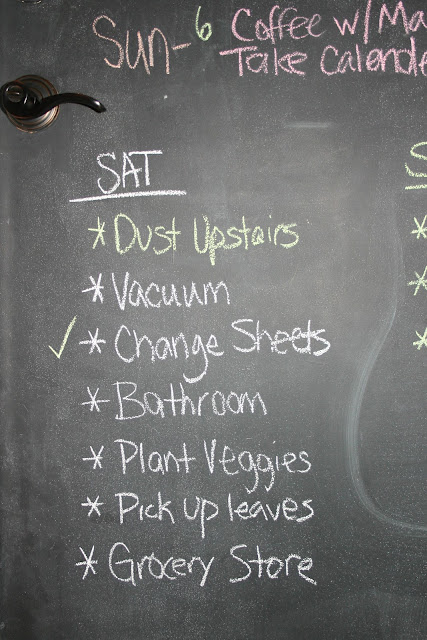 Sun- 6 Coffee w/
Take
SAT
* Dust Upstairs
* Vacuum
✓ * Change Sheets
* Bathroom
* Plant Veggies
* Pick up leaves
* Grocery Store